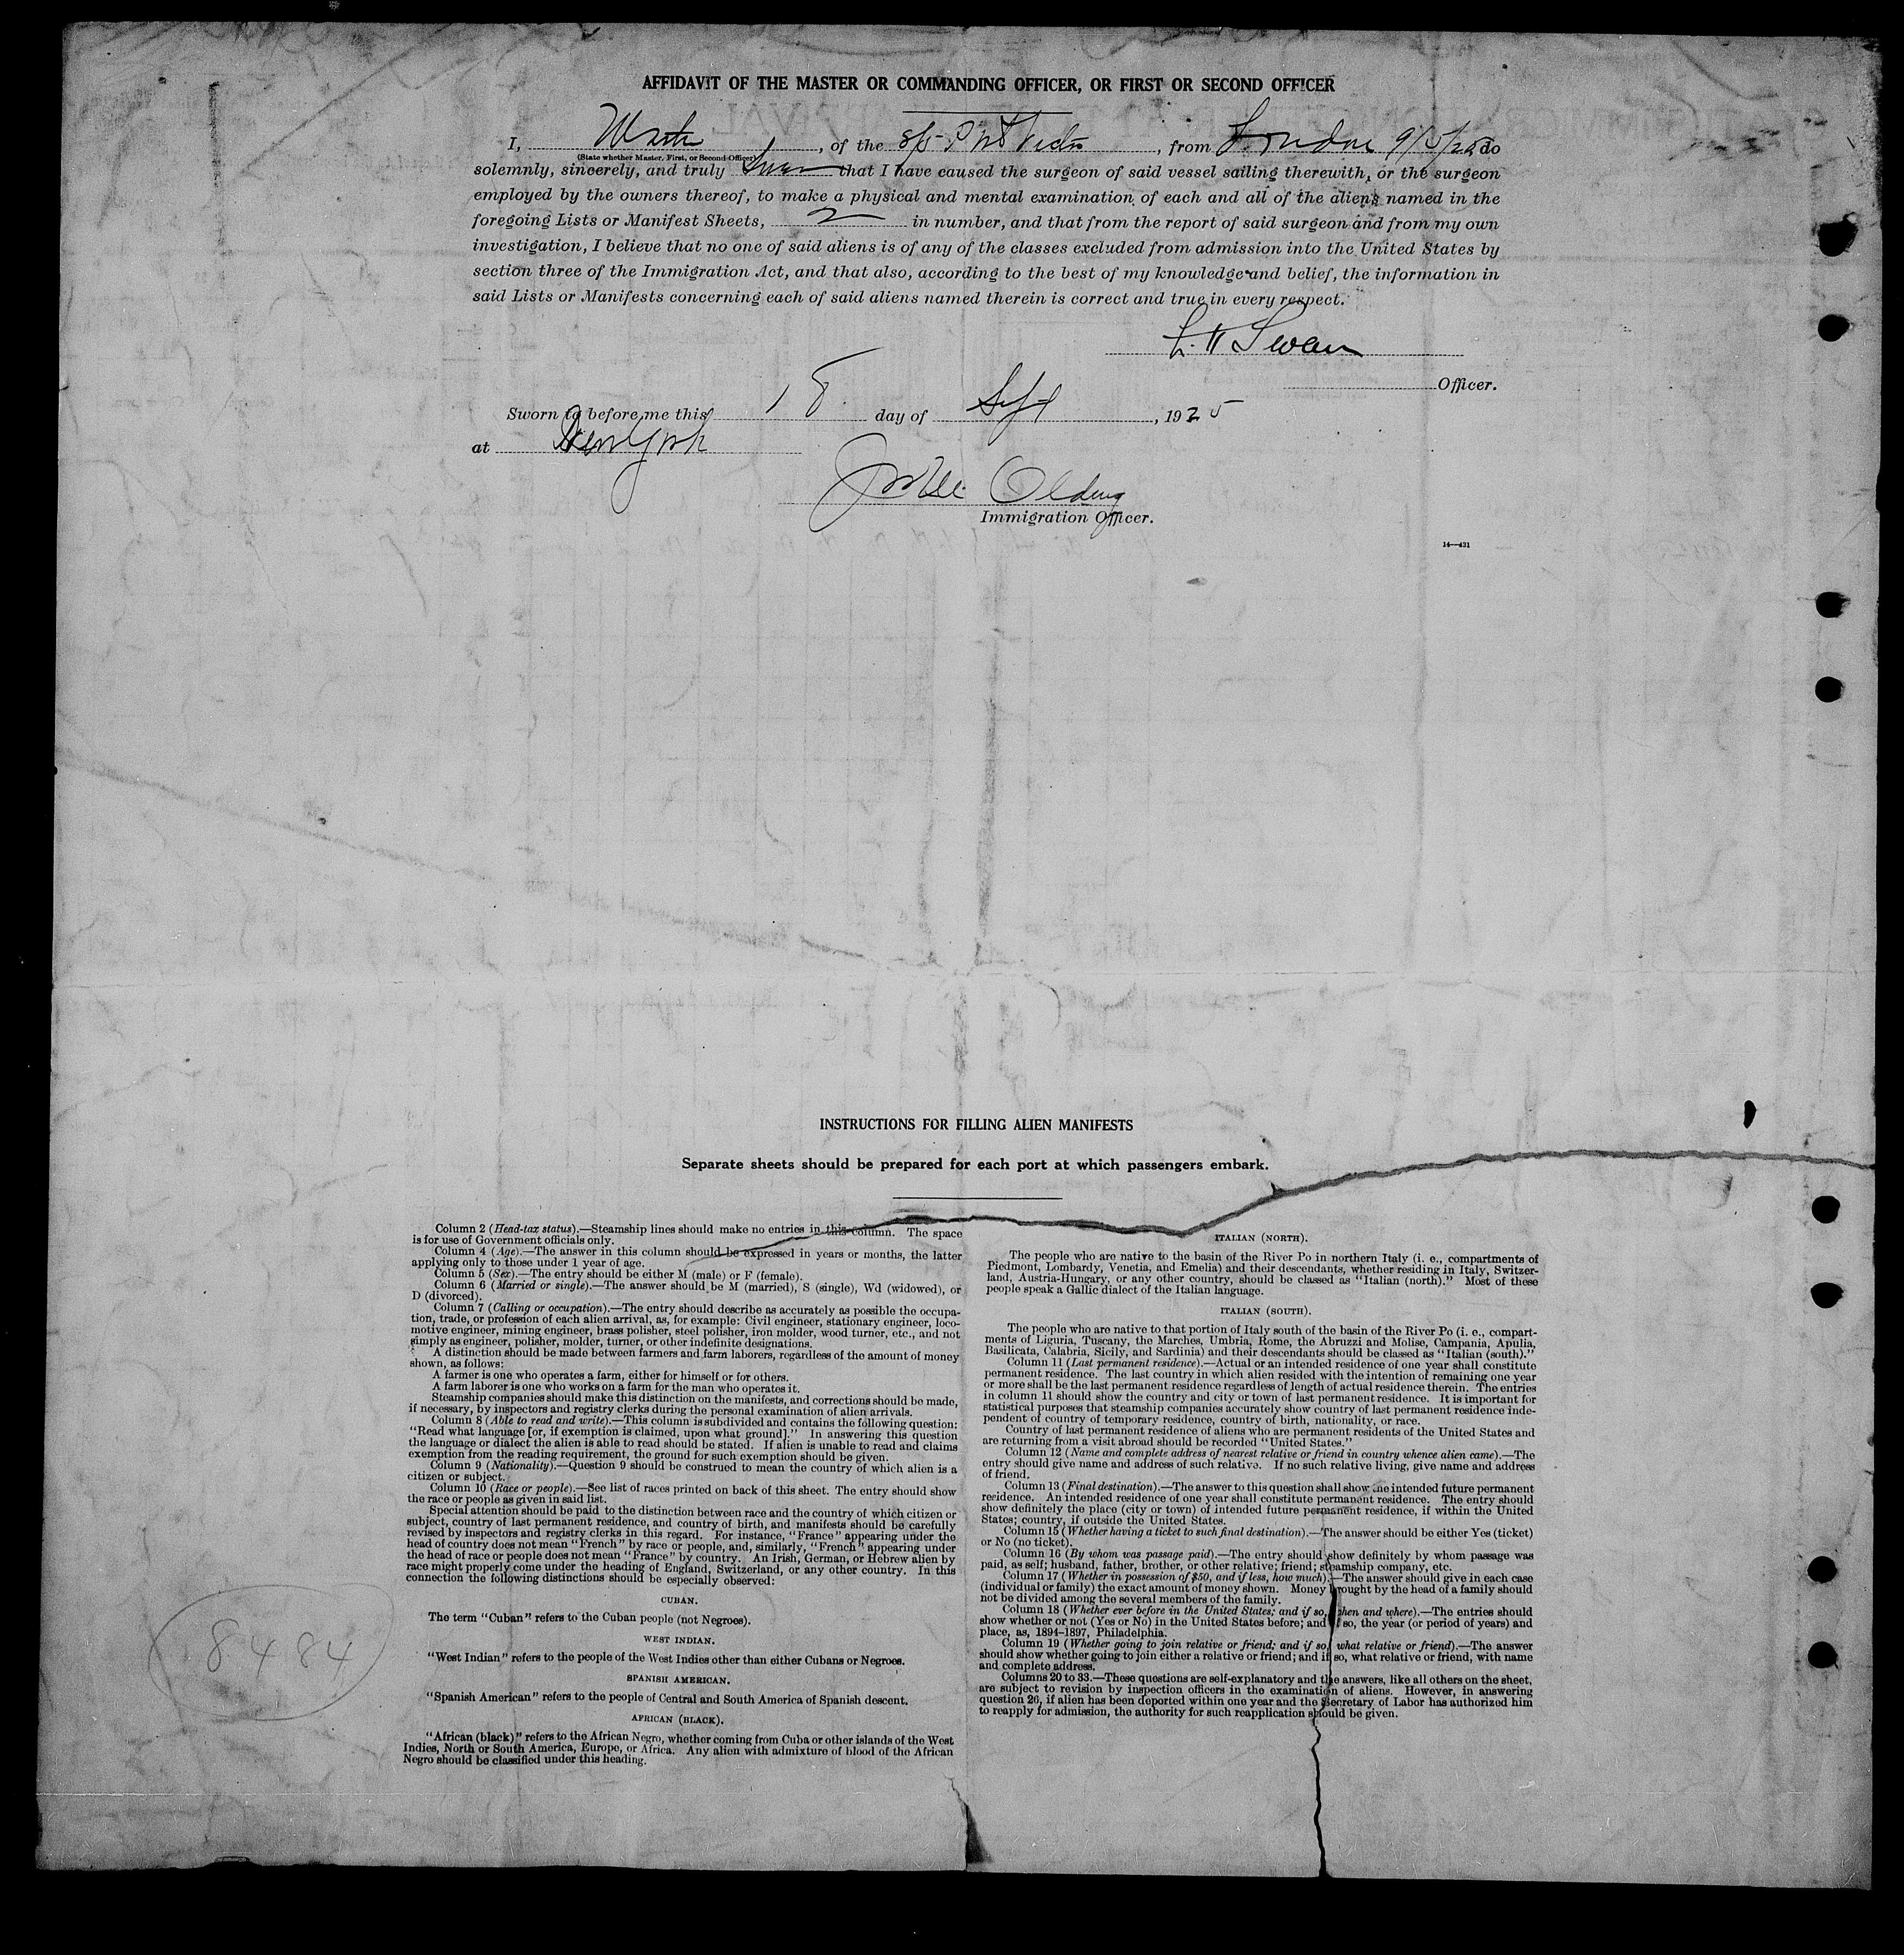 AFFIDAVIT OF THE MASTER OR COMMANDING OFFICER, OR FIRST OR SECOND OFFICER
I, Master, of the S/S, from London 9/5/25 do
(State whether Master, First, or Second Officer)
solemnly, sincerely, and truly Swear that I have caused the surgeon of said vessel sailing therewith, or the surgeon
employed by the owners thereof, to make a physical and mental examination of each and all of the aliens named in the
foregoing Lists or Manifest Sheets, 2 in number, and that from the report of said surgeon and from my own
investigation, I believe that no one of said aliens is of any of the classes excluded from admission into the United States by
section three of the Immigration Act, and that also, according to the best of my knowledge and belief, the information in
said Lists or Manifests concerning each of said aliens named therein is correct and true in every respect.
Swan
Officer.
Sworn to before me this 18 day of Sept, 1925
at New York
Immigration Officer.
14—431
INSTRUCTIONS FOR FILLING ALIEN MANIFESTS
Separate sheets should be prepared for each port at which passengers embark.
Column 2 (Head-tax status).—Steamship lines should make no entries in this column. The space
is for use of Government officials only.
Column 4 (Age).—The answer in this column should be expressed in years or months, the latter
applying only to those under 1 year of age.
Column 5 (Sex).—The entry should be either M (male) or F (female).
Column 6 (Married or single).—The answer should be M (married), S (single), Wd (widowed), or
D (divorced).
Column 7 (Calling or occupation).—The entry should describe as accurately as possible the occupa-
tion, trade, or profession of each alien arrival, as, for example: Civil engineer, stationary engineer, loco-
motive engineer, mining engineer, brass polisher, steel polisher, iron molder, wood turner, etc., and not
simply as engineer, polisher, molder, turner, or other indefinite designations.
A distinction should be made between farmers and farm laborers, regardless of the amount of money
shown, as follows:
A farmer is one who operates a farm, either for himself or for others.
A farm laborer is one who works on a farm for the man who operates it.
Steamship companies should make this distinction on the manifests, and corrections should be made,
if necessary, by inspectors and registry clerks during the personal examination of alien arrivals.
Column 8 (Able to read and write).—This column is subdivided and contains the following question:
"Read what language [or, if exemption is claimed, upon what ground]." In answering this question
the language or dialect the alien is able to read should be stated. If alien is unable to read and claims
exemption from the reading requirement, the ground for such exemption should be given.
Column 9 (Nationality).—Question 9 should be construed to mean the country of which alien is a
citizen or subject.
Column 10 (Race or people).—See list of races printed on back of this sheet. The entry should show
the race or people as given in said list.
Special attention should be paid to the distinction between race and the country of which citizen or
subject, country of last permanent residence, and country of birth, and manifests should be carefully
revised by inspectors and registry clerks in this regard. For instance, "France" appearing under the
head of country does not mean "French" by race or people, and, similarly, "French" appearing under
the head of race or people does not mean "France" by country. An Irish, German, or Hebrew alien by
race might properly come under the heading of England, Switzerland, or any other country. In this
connection the following distinctions should be especially observed:
CUBAN.
The term "Cuban" refers to the Cuban people (not Negroes).
WEST INDIAN.
"West Indian" refers to the people of the West Indies other than either Cubans or Negroes.
SPANISH AMERICAN.
"Spanish American" refers to the people of Central and South America of Spanish descent.
AFRICAN (BLACK).
"African (black)" refers to the African Negro, whether coming from Cuba or other islands of the West
Indies, North or South America, Europe, or Africa. Any alien with admixture of blood of the African
Negro should be classified under this heading.
8484
ITALIAN (NORTH).
The people who are native to the basin of the River Po in northern Italy (i. e., compartments of
Piedmont, Lombardy, Venetia, and Emelia) and their descendants, whether residing in Italy, Switzer-
land, Austria-Hungary, or any other country, should be classed as "Italian (north)." Most of these
people speak a Gallic dialect of the Italian language.
ITALIAN (SOUTH).
The people who are native to that portion of Italy south of the basin of the River Po (i. e., compart-
ments of Liguria, Tuscany, the Marches, Umbria, Rome, the Abruzzi and Molise, Campania, Apulia,
Basilicata, Calabria, Sicily, and Sardinia) and their descendants should be classed as "Italian (south)."
Column 11 (Last permanent residence).—Actual or an intended residence of one year shall constitute
permanent residence. The last country in which alien resided with the intention of remaining one year
or more shall be the last permanent residence regardless of length of actual residence therein. The entries
in column 11 should show the country and city or town of last permanent residence. It is important for
statistical purposes that steamship companies accurately show country of last permanent residence inde-
pendent of country of temporary residence, country of birth, nationality, or race.
Country of last permanent residence of aliens who are permanent residents of the United States and
are returning from a visit abroad should be recorded "United States."
Column 12 (Name and complete address of nearest relative or friend in country whence alien came).—The
entry should give name and address of such relative. If no such relative living, give name and address
of friend.
Column 13 (Final destination).—The answer to this question shall show the intended future permanent
residence. An intended residence of one year shall constitute permanent residence. The entry should
show definitely the place (city or town) of intended future permanent residence, if within the United
States; country, if outside the United States.
Column 15 (Whether having a ticket to such final destination).—The answer should be either Yes (ticket)
or No (no ticket).
Column 16 (By whom was passage paid).—The entry should show definitely by whom passage was
paid, as self; husband, father, brother, or other relative; friend; steamship company, etc.
Column 17 (Whether in possession of $50, and if less, how much).—The answer should give in each case
(individual or family) the exact amount of money shown. Money brought by the head of a family should
not be divided among the several members of the family.
Column 18 (Whether ever before in the United States; and if so, when and where).—The entries should
show whether or not (Yes or No) in the United States before; and if so, the year (or period of years) and
place, as, 1894–1897, Philadelphia.
Column 19 (Whether going to join relative or friend; and if so, what relative or friend).—The answer
should show whether going to join either a relative or friend; and if so, what relative or friend, with name
and complete address.
Columns 20 to 33.—These questions are self-explanatory and the answers, like all others on the sheet,
are subject to revision by inspection officers in the examination of aliens. However, in answering
question 26, if alien has been deported within one year and the Secretary of Labor has authorized him
to reapply for admission, the authority for such reapplication should be given.